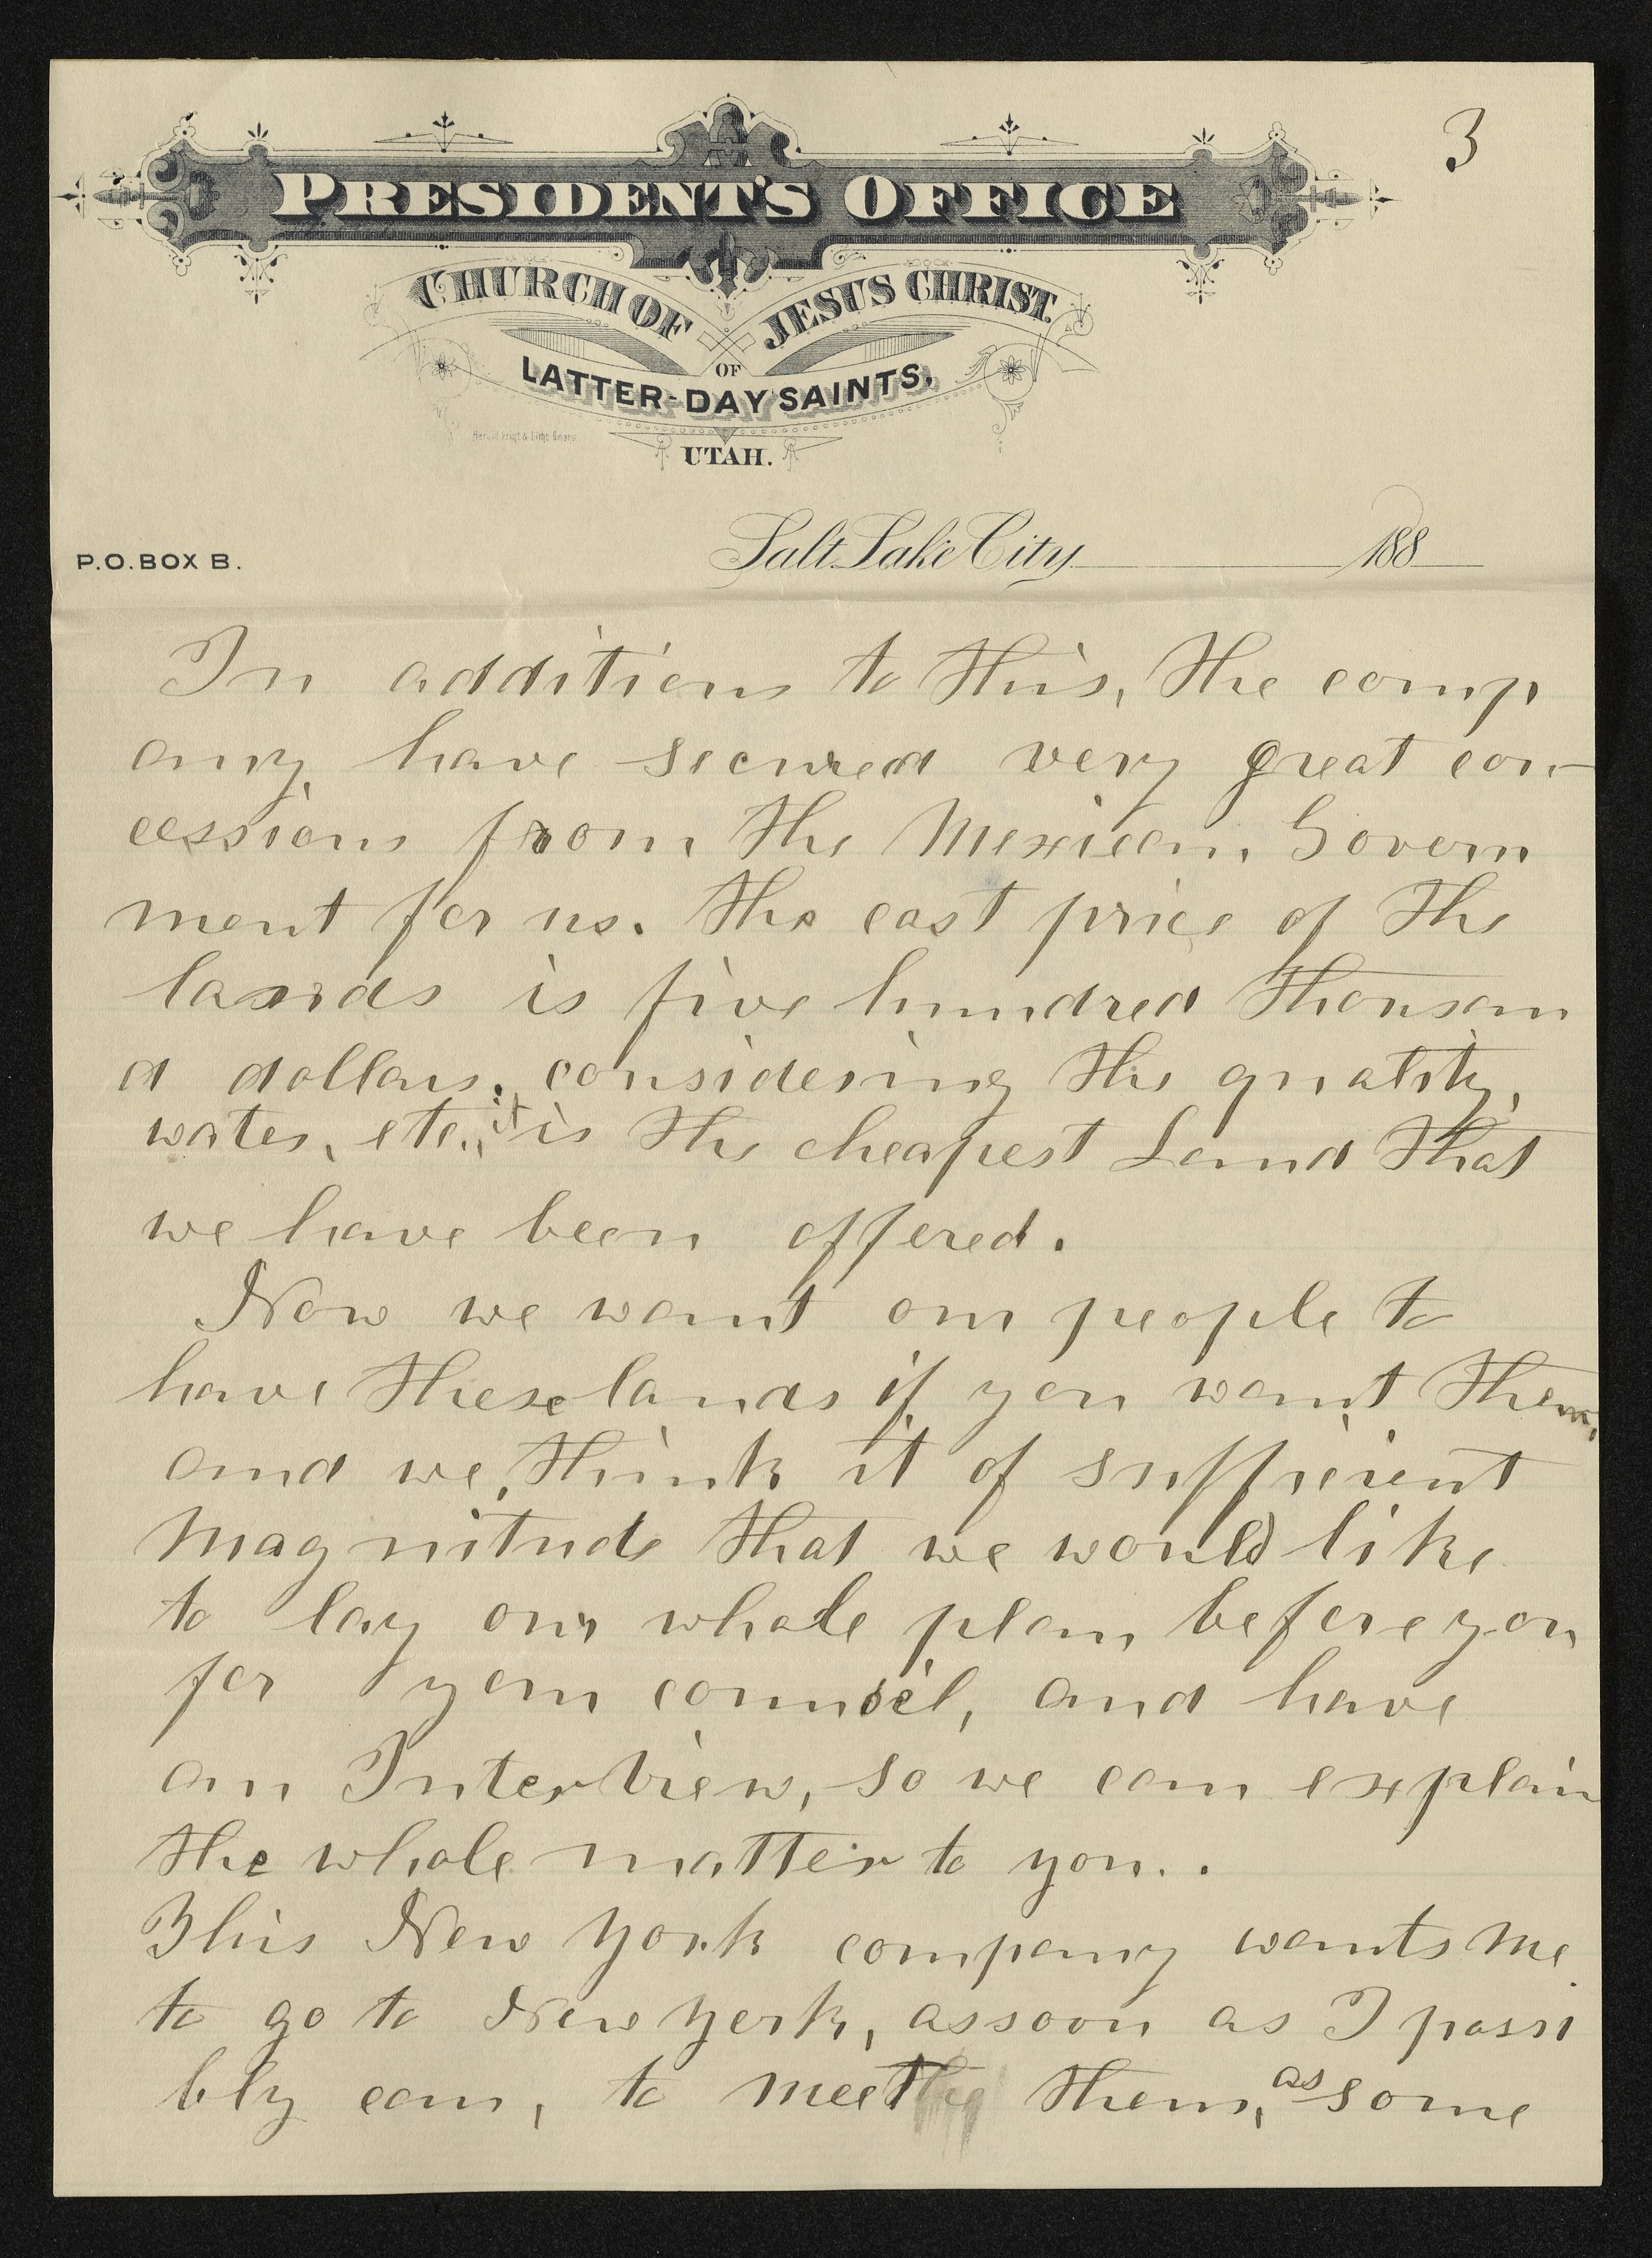 3
PRESIDENT'S OFFICE
CHURCH OF JESUS CHRIST
OF
LATTER-DAY SAINTS,
UTAH.
P.O. BOX B.
Salt Lake City 188
In additions to this, the comp
any, have secured very great con-
cessions from the Mexican Govern
ment for us. The cost price of the
lands is five hundred thousan
d dollars. considering the quality,
water, etc., it is the cheapest Land that
we have been offered.
Now we want our people to
have these lands if you want them,
and we, think it of sufficient
magnitude that we would like
to lay our whole plan before you
for your council, and have
an Interview, so we can explain
the whole matter to you..
This New York company wants me
to go to New York, as soon as I possi
bly can, to meet them, as some